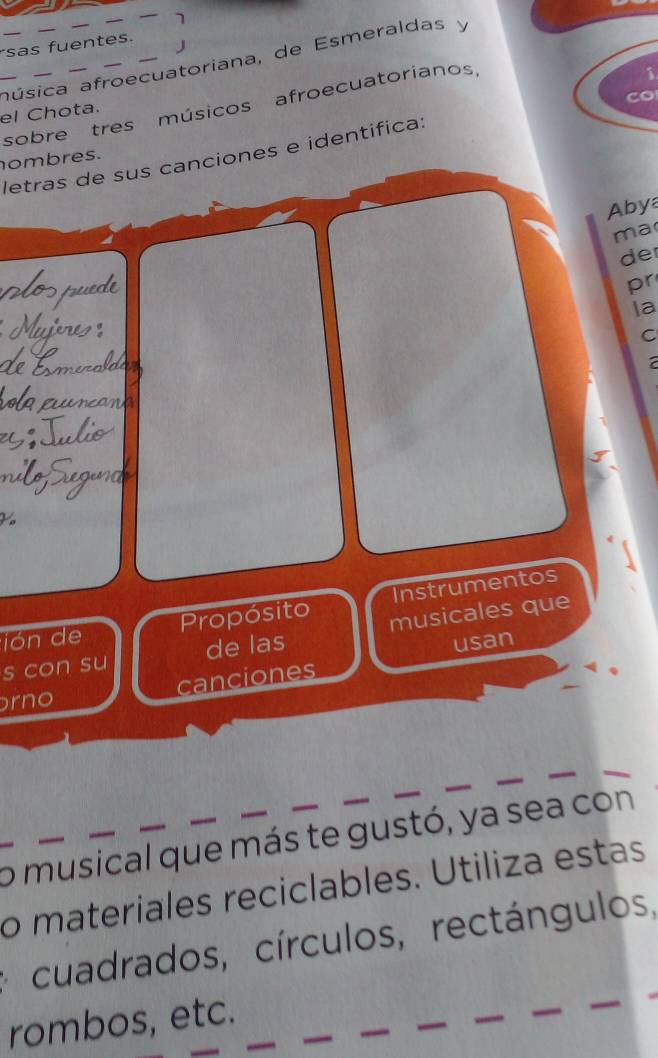 rsas fuentes.
música afroecuatoriana, de Esmeraldas y
el Chota.
sobre tres músicos afroecuatorianos,
nombres.
letras de sus canciones e identifica:
puede
Mujeres:
de Esmeraldas,
: Julio
Segundo
ión de
s con su
orno
Propósito
de las
canciones
Instrumentos
musicales que
usan
o musical que más te gustó, ya sea con
o materiales reciclables. Utiliza estas
: cuadrados, círculos, rectángulos,
rombos, etc.
1.
co
Abya
ma
der
pr
la
c
a